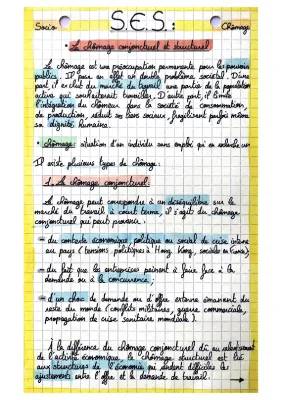 Socio
S.E.S :
Chômage
• Le chômage conjoncturel et structurel
Le chômage est une préoccupation permanente pour les pouvoirs
publics. Il pose en effet un double problème sociétal. D'une
part, il exclut du marché du travail une partie de la population
active qui souhaiterait travailler. D'autre part, il limite
l'intégration du chômeur dans la société de consommation,
de production, réduit ses liens sociaux, fragilisant parfois même
sa dignité humaine.
• chômage : situation d'un individu sans emploi qui en recherche un
Il existe plusieurs types de chômage.
1. Le chômage conjoncturel :
Le chômage peut correspondre à un déséquilibre sur le
marché du travail à court terme, il s'agit du chômage
conjoncturel qui peut provenir :
- du contexte économique, politique ou social de crise interne
au pays (tensions politiques à Hong Kong, sociales en
- du fait que les entreprises peinent à faire face à la
demande ou à la concurrence ;
- d'un choc de demande ou d'offre externe émanant du
reste du monde (conflits militaires, guerre commerciale,
propagation de crise sanitaire mondiale).
À la différence du chômage conjoncturel dû au ralentissement
de l'activité économique, le chômage structurel est lié
aux structures de l'économie qui rendent difficiles les
ajustements entre l'offre et la demande de travail.